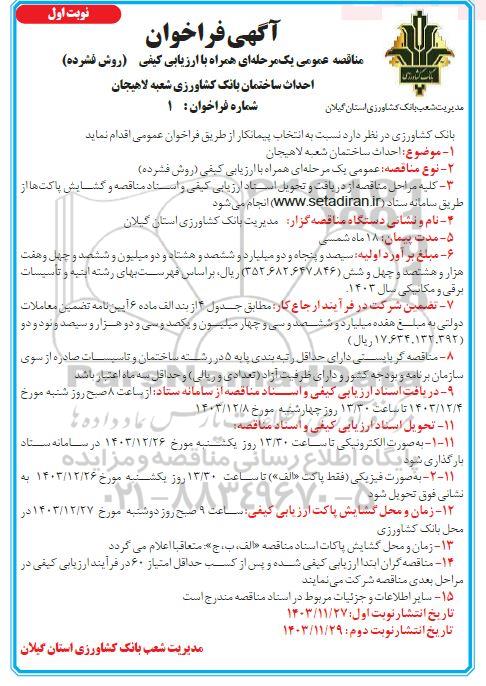 نوبت اول
آگهی فراخوان
مناقصه عمومی یک‌مرحله‌ای همراه با ارزیابی کیفی (روش فشرده)
احداث ساختمان بانک کشاورزی شعبه لاهیجان
شماره فراخوان: ۱
بانک کشاورزی
مدیریت شعب بانک کشاورزی استان گیلان
بانک کشاورزی در نظر دارد نسبت به انتخاب پیمانکار از طریق فراخوان عمومی اقدام نماید
۱-موضوع: احداث ساختمان شعبه لاهیجان
۲- نوع مناقصه: عمومی یک مرحله‌ای همراه با ارزیابی کیفی (روش فشرده)
۳- کلیه مراحل مناقصه از دریافت و تحویل اسناد ارزیابی کیفی و اسناد مناقصه و گشایش پاکت‌ها از
طریق سامانه ستاد (www.setadiran.ir) انجام می‌شود
۴- نام و نشانی دستگاه مناقصه‌گزار: مدیریت بانک کشاورزی استان گیلان
۵- مدت پیمان: ۱۸ ماه شمسی
۶- مبلغ برآورد اولیه: سیصد و پنجاه و دو میلیارد و ششصد و هشتاد و دو میلیون و ششصد و چهل وهفت
هزار و هشتصد و چهل و شش (۳۵۲,۶۸۲,۶۴۷,۸۴۶) ریال، براساس فهرست‌بهای رشته ابنیه و تأسیسات
برقی و مکانیکی سال ۱۴۰۳.
۷- تضمین شرکت در فرآیند ارجاع کار: مطابق جدول ۴ از بند الف ماده ۶ آیین‌نامه تضمین معاملات
دولتی به مبلغ هفده میلیارد و ششصد و سی و چهار میلیون و یکصد و سی و دو هزار و سیصد و نود و دو
(۱۷,۶۳۴,۱۳۲,۳۹۲ ریال)
۸- مناقصه‌گر بایستی دارای حداقل رتبه‌بندی پایه ۵ در رشته ساختمان و تاسیسات صادره از سوی
سازمان برنامه و بودجه کشور و دارای ظرفیت آزاد (تعدادی و ریالی) و حداقل سه ماه اعتبار باشد
۹- دریافت اسناد ارزیابی کیفی و اسناد مناقصه از سامانه ستاد: از ساعت ۸ صبح روز شنبه مورخ
۱۴۰۳/۱۲/۴ تا ساعت ۱۳/۳۰ روز چهارشنبه مورخ ۱۴۰۳/۱۲/۸
۱۱- تحویل اسناد ارزیابی کیفی و اسناد مناقصه:
۱۱-۱- به‌صورت الکترونیکی تا ساعت ۱۳/۳۰ روز یکشنبه مورخ ۱۴۰۳/۱۲/۲۶ در سامانه ستاد
بارگذاری شود
۱۱-۲- به‌صورت فیزیکی (فقط پاکت «الف») تا ساعت ۱۳/۳۰ روز یکشنبه مورخ ۱۴۰۳/۱۲/۲۶ به
نشانی فوق تحویل شود
۱۲- زمان و محل گشایش پاکت ارزیابی کیفی: ساعت ۹ صبح روز دوشنبه مورخ ۱۴۰۳/۱۲/۲۷ در
محل بانک کشاورزی
۱۳- زمان و محل گشایش پاکات اسناد مناقصه «الف، ب، ج»: متعاقبا اعلام می گردد
۱۴- مناقصه‌گران ابتدا ارزیابی کیفی شده و پس از کسب حداقل امتیاز ۶۰ در فرآیند ارزیابی کیفی در
مراحل بعدی مناقصه شرکت می‌نمایند
۱۵- سایر اطلاعات و جزئیات مربوط در اسناد مناقصه مندرج است
تاریخ انتشار نوبت اول: ۱۴۰۳/۱۱/۲۷
تاریخ انتشار نوبت دوم: ۱۴۰۳/۱۱/۲۹
مدیریت شعب بانک کشاورزی استان گیلان
پایگاه اطلاع رسانی مناقصه و مزایده
۰۲۱-۸۸۳۴۹۶۷۰-۵